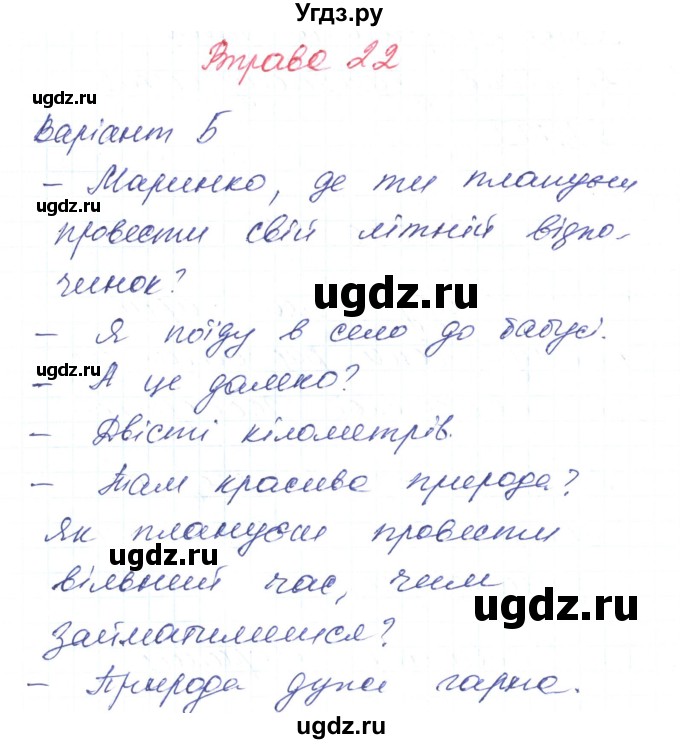 Угдз.ру
Вправа 22
ugdz.ru
Варіант Б
– Маринко, де ти плануєш
ugdz.ru
провести свій літній відпо-
чинок?
ugdz.ru
– Я поїду в село до бабусі.
ugdz.ru
– А це далеко?
– Двісті кілометрів.
– Там красива природа?
Як плануєш провести
ugdz.ru
вільний час, чим
ugdz.ru
займатимешся?
– Природа дуже гарна.
ugdz.ru